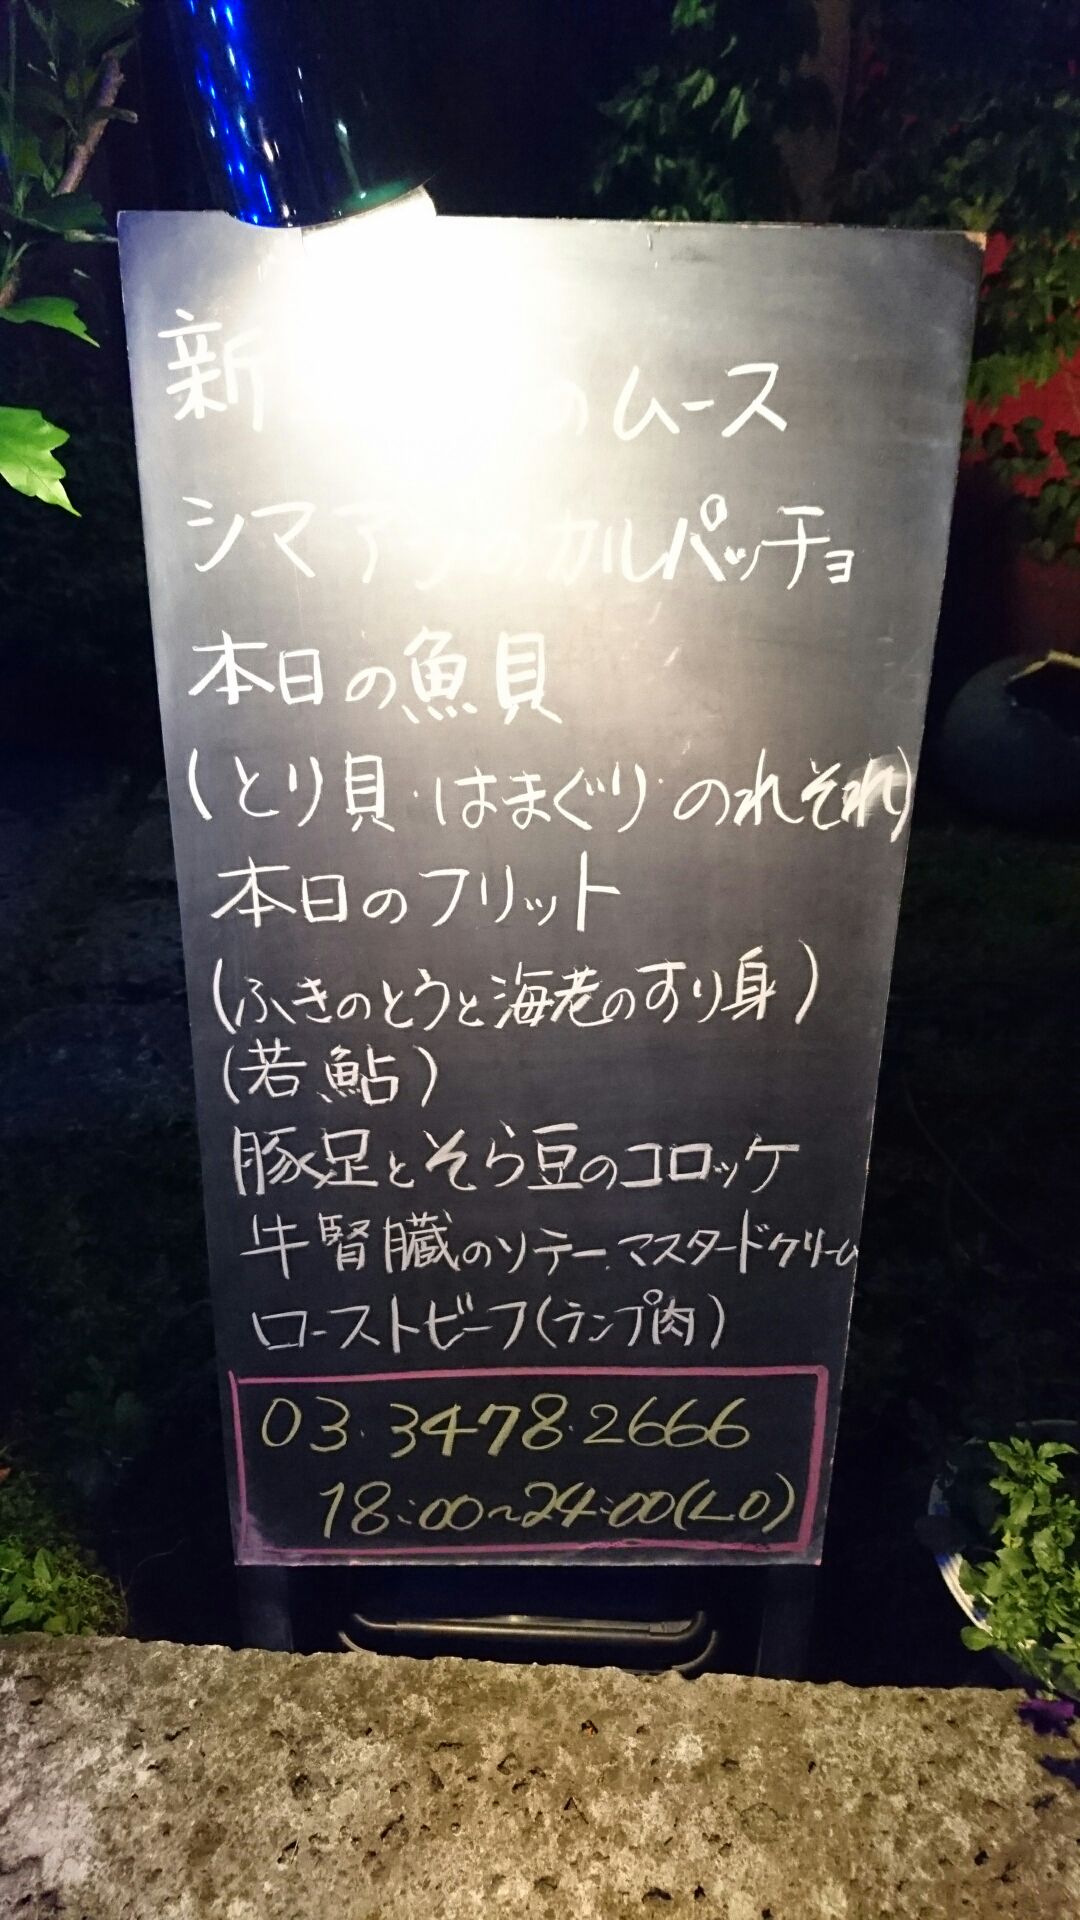 新 のムース
シマアジのカルパッチョ
本日の魚貝
(とり貝・はまぐり・のれそれ)
本日のフリット
(ふきのとうと海老のすり身)
(若鮎)
豚足とそら豆のコロッケ
牛腎臓のソテー.マスタードクリーム
ローストビーフ(ランプ肉)
03.3478.2666
18:00~24:00(LO)